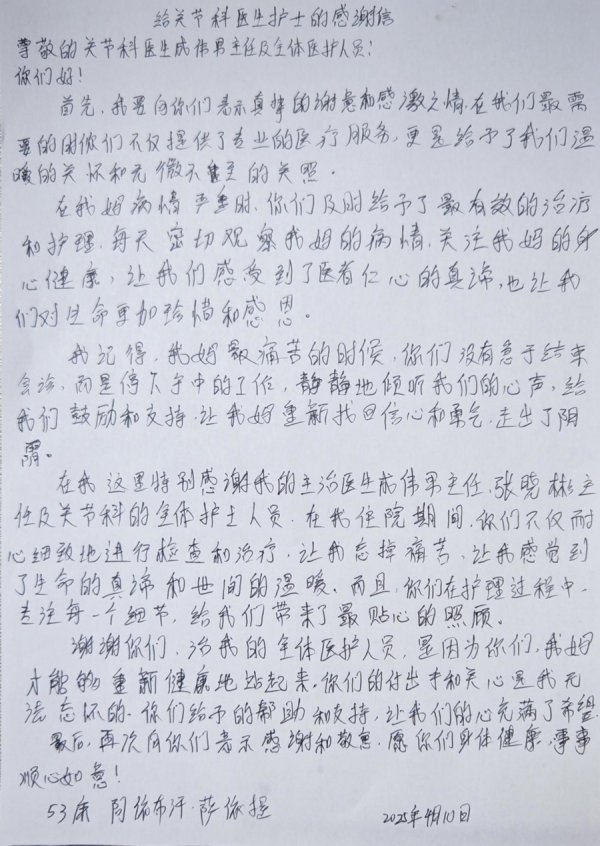 给关节科医生护士的感谢信
尊敬的关节科医生成伟男主任及全体医护人员:
你们好!
首先,我要向你们表示真挚的谢意和感激之情.在我们最需
要的时候你们不仅提供了专业的医疗服务,更是给予了我们温
暖的关怀和无微不至的关照.
在我妈病情严重时,你们及时给予了最有效的治疗
和护理,每天密切观察我妈的病情,关注我妈的身
心健康,让我们感受到了医者仁心的真谛,也让我
们对生命更加珍惜和感恩。
我记得,我妈最痛苦的时候,你们没有急于结束
会诊,而是停下手中的工作,静静地倾听我们的心声,给
我们鼓励和支持,让我妈重新找回信心和勇气,走出了阴
霾。
在我这里特别感谢我的主治医生成伟男主任,张晓彬主
任及关节科的全体护士人员.在我住院期间,你们不仅耐
心细致地进行检查和治疗,让我忘掉痛苦,让我感觉到
了生命的真谛和世间的温暖.而且,你们在护理过程中,
专注每一个细节,给我们带来了最贴心的照顾。
谢谢你们,治我的全体医护人员,是因为你们,我妈
才能够重新健康地站起来.你们的付出和关心是我无
法忘怀的.你们给予的帮助和支持,让我们的心充满了希望.
最后,再次向你们表示感谢和敬意.愿你们身体健康,事事
顺心如意!
53床 阿依布汗·萨依提 2025年4月10日